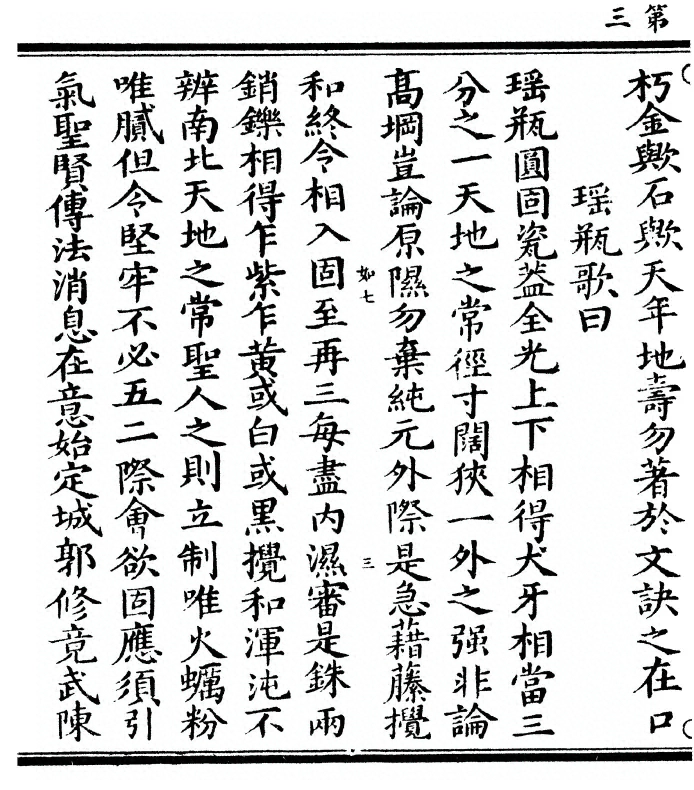 第三
朽金歟石歟天年地壽勿著於文訣之在口
瑶瓶歌曰
瑶瓶圓固瓷蓋全光上下相得犬牙相當三
分之一天地之常徑寸闊狹一外之强非論
髙堈豈論原隰勿棄純元外際是急藉藤攪
如七
三
和終令相入固至再三每盡内濕審是銖兩
銷鑠相得乍紫乍黄或白或黒攪和渾沌不
辨南北天地之常聖人之則立制唯火蠣粉
唯膩但令堅牢不必五二際會欲固應須引
氣聖賢傳法消息在意始定城郭修竟武陳